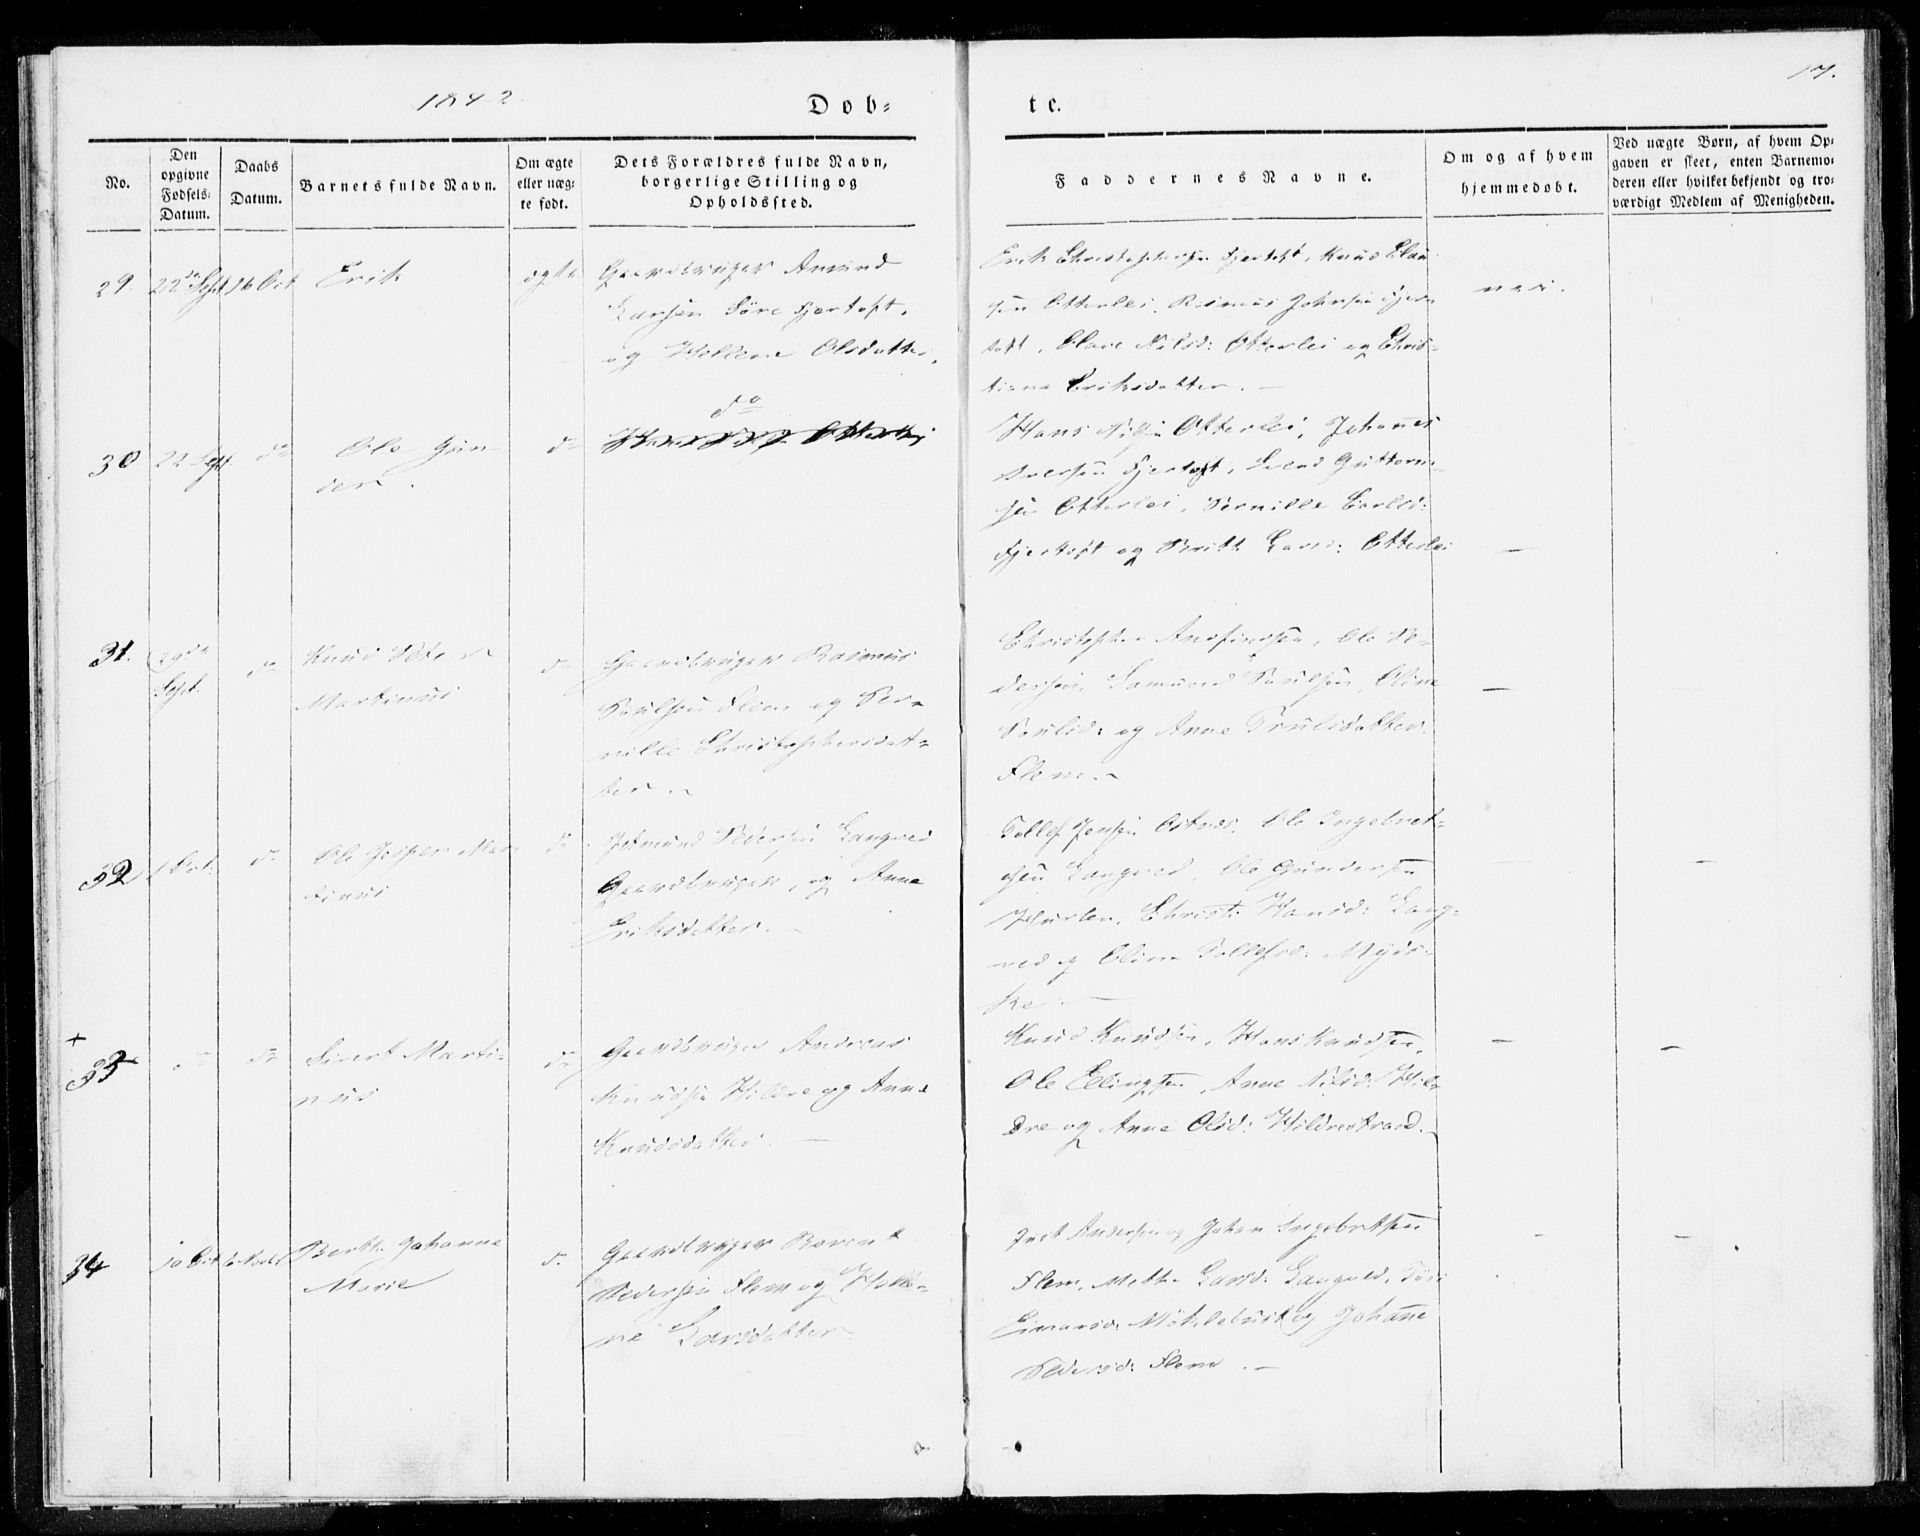 1842
Døb-
te.
17.
No.
Den
opgivne
Fødsels-
Datum.
Daabs
Datum.
Barnets fulde Navn.
Om ægte
eller næg-
te født.
Dets Forældres fulde Navn,
borgerlige Stilling og
Opholdssted.
Faddernes Navne.
Om og af hvem
hjemmedøbt.
Ved uægte Børn, af hvem Op-
gaven er skeet, enten Barnemo-
deren eller hvilket bekjendt og tro-
værdigt Medlem af Menigheden.
29.
22de Sept
16 Oct
Erik
ægte
Gaardbruger Amund
Larsen Søre Fjertoft,
og Hellene Olsdatter,
Erik Christophersen Fjertoft, Knud Clau-
sen Otterlei, Rasmus Johnsen Fjer-
toft, Olave Nilsd: Otterlei og Chris-
tiane Eriksdatter. —
nei.
30
22 Sept
do
Ole Gun-
der.
do
do
Hans Otterlei, Johannes
Iversen Fjertoft, Svend Guttorm-
sen Otterlei, Pernille Carlsd:
Fjertoft og Britt Larsd: Otterlei
—
31.
29de
Sept.
do
Knud Peter
Martinus
do
Gaardbruger Rasmus
Poulsen Flem og Per-
nille Christophersdat-
ter.
Christopher Andfindsen, Ole Pe-
dersen, Samund Poulsen, Oline
Poulsd: og Anne Trulsdatter
Flem.
—
32
1 Oct:
do
Ole Jesper Mar-
tinus
do
Jetmund Pedersen Langved
Gaardbruger, og Anne
Eriksdatter. —
Tollef Jensen Ole Ingebret-
sen Langved, Ole Gundersen
Hurlen, Christi Hansd: Lang-
ved og Oline Tollefsd: Myds-
ke. —
—
—
+
33
do
do
Sivert Marti-
nus
do
Gaardbruger Andreas
Knudsen Hildre og Anne
Knudsdatter. —
Knud Knudsen, Hans Knudsen,
Ole Ellingsen, Anne Nilsd: Hil-
dre og Anne Olsd: Hildrestrand. —
—
—
34
10 Oct
6 Novbr
Berthe Johanne
Marie
do
Gaardbruger Berent
Pedersen Flem og Helle-
ne Larsdatter
Andersen og Johan Ingebretsen
Flem, Mette Larsd: Langved,
Eimarsd: Møklebust og Johanne
Pedersd: Flem. —
—
—